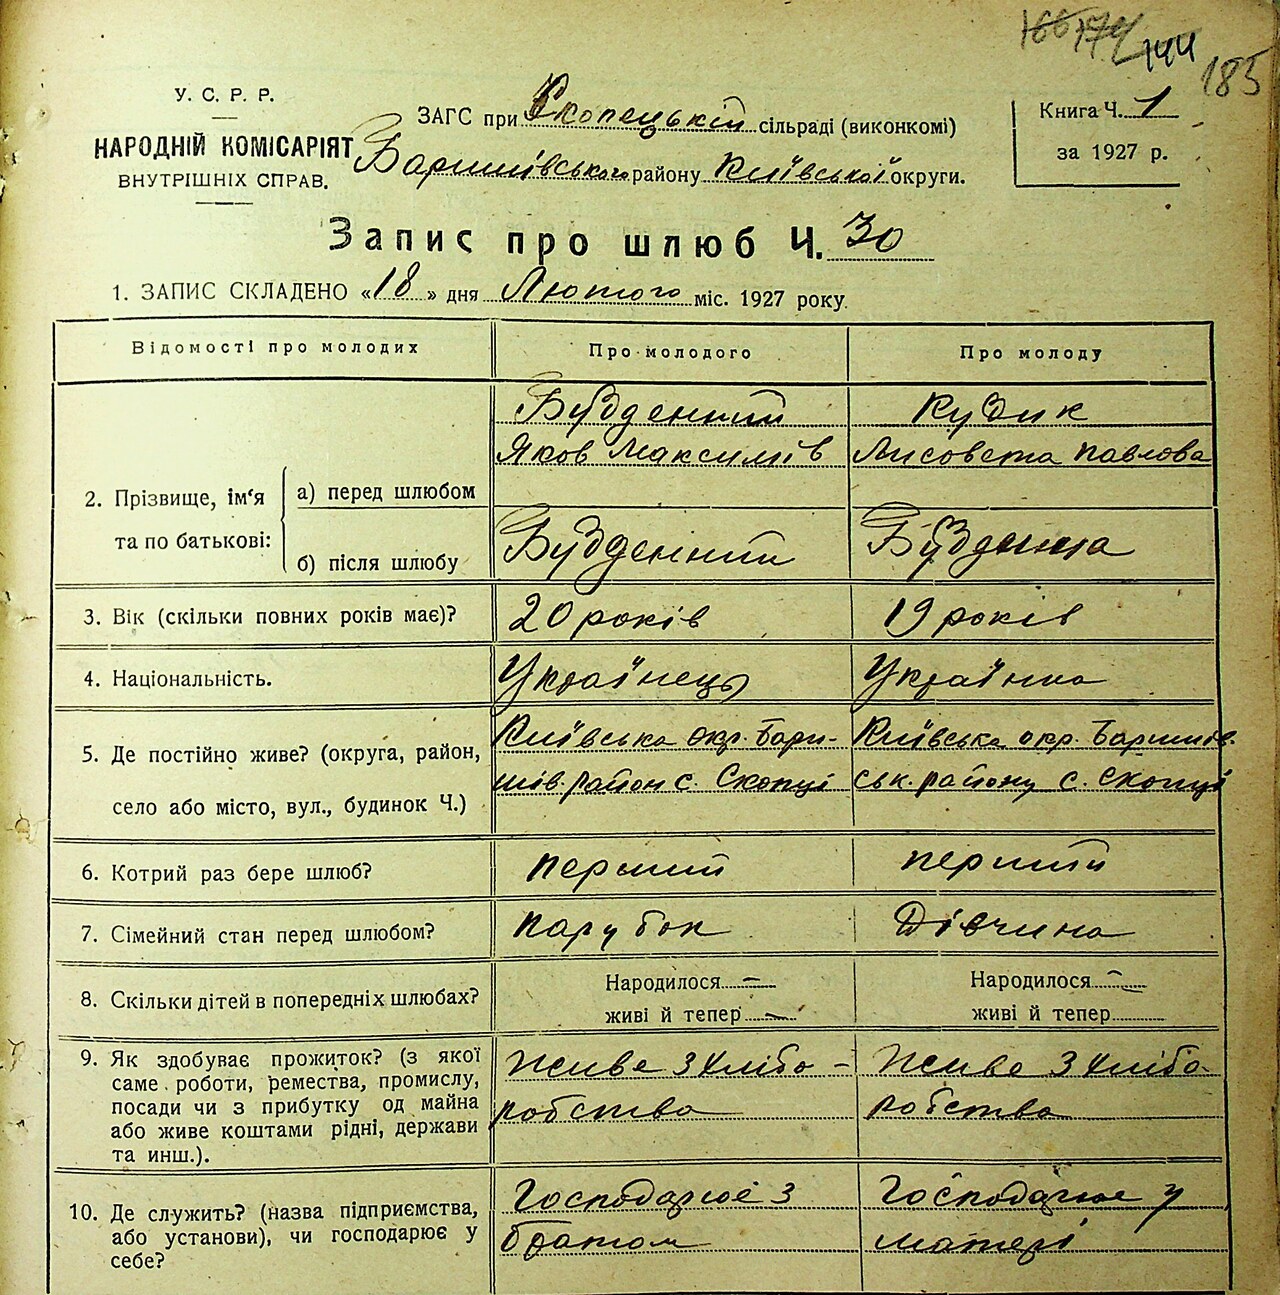 166 174 144 185
У. С. Р. Р.
НАРОДНІЙ КОМІСАРІЯТ
ВНУТРІШНІХ СПРАВ.
ЗАГС при Скопецькій сільраді (виконкомі)
Баришівського району Київської округи.
Книга Ч. 1
за 1927 р.
Запис про шлюб Ч. 30
1. ЗАПИС СКЛАДЕНО «18» дня Лютого міс. 1927 року
Відомості про молодих Про молодого Про молоду
2. Прізвище, ім'я та по батькові:
а) перед шлюбом
Буд̶денний Кузик
Яков Максимів Лисовета Павлова
б) після шлюбу
Будденний Будденна
3. Вік (скільки повних років має)? 20 років 19 років
4. Національність. Українець Українка
5. Де постійно живе? (округа, район,
село або місто, вул., будинок Ч.)
Київська окр. Бари-
шів. район с. Скопці
Київська окр. Баришів-
ськ. району с. Скопці
6. Котрий раз бере шлюб? перший перший
7. Сімейний стан перед шлюбом? парубок Дівчина
8. Скільки дітей в попередніх шлюбах?
Народилося — Народилося —
живі й тепер — живі й тепер
9. Як здобуває прожиток? (з якої
саме роботи, ремества, промислу,
посади чи з прибутку од майна
або живе коштами рідні, держави
та инш.).
Живе з хлібо-
робства
Живе з хлібо-
робства
10. Де служить? (назва підприємства,
або установи), чи господарює у
себе?
Господарює з
братом
Господарює у
матері